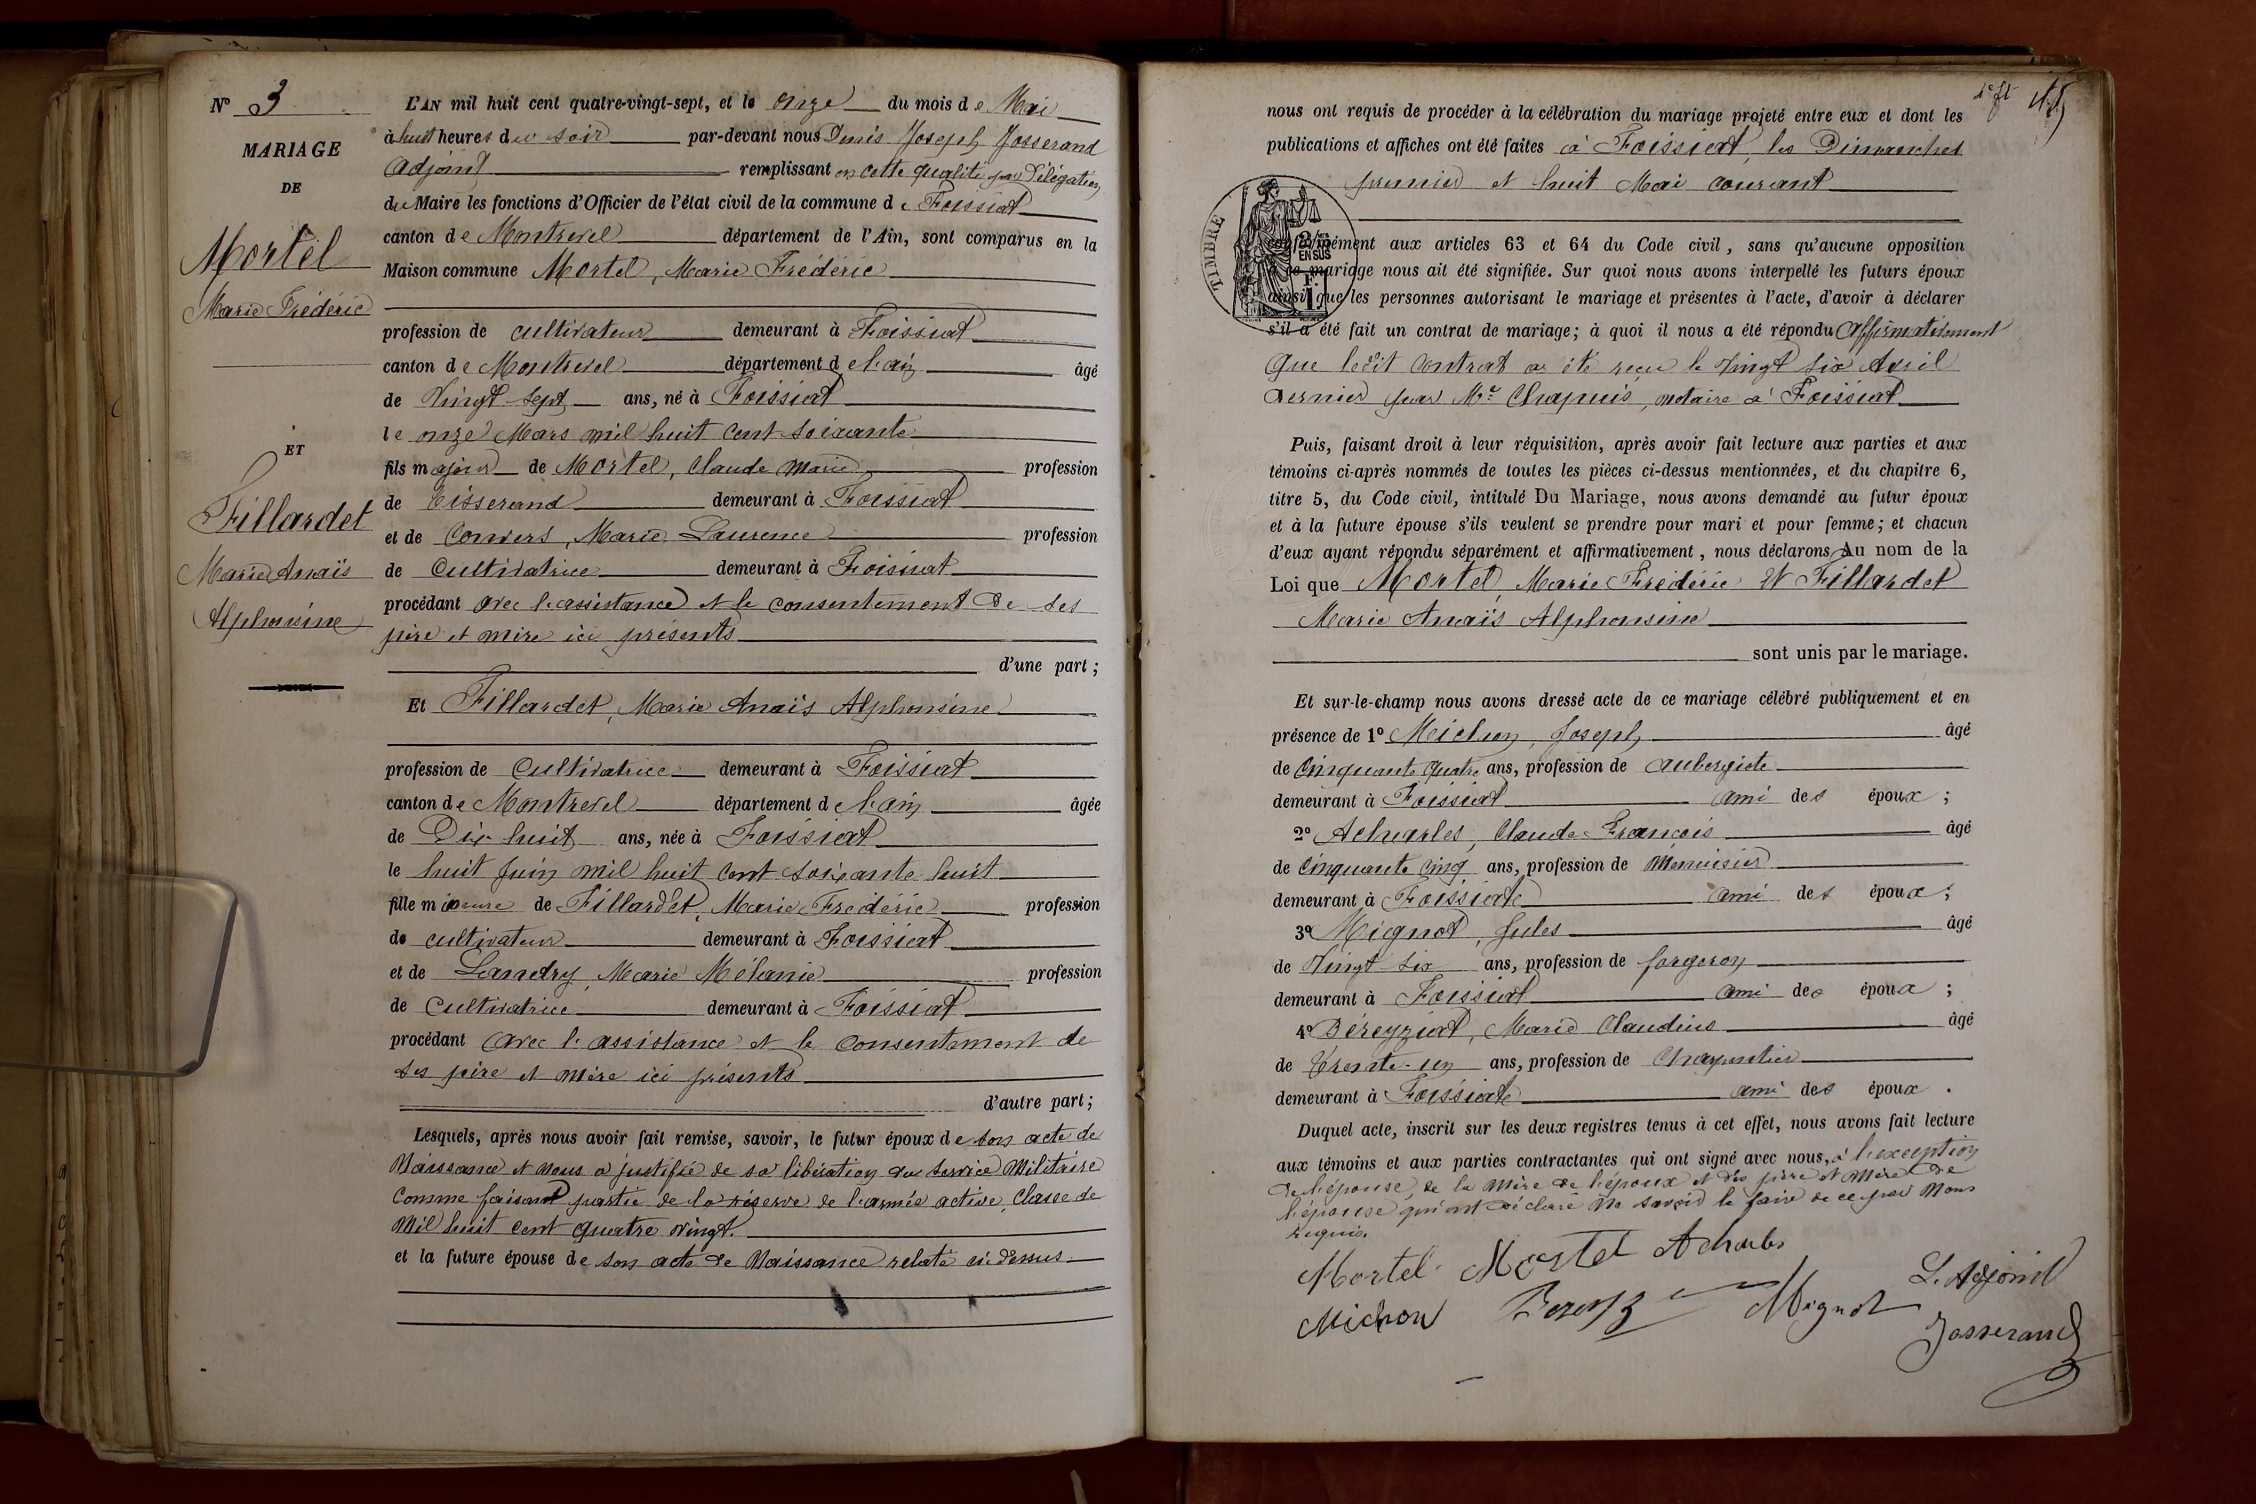 N° 3
MARIAGE
DE
Mortel
Marie Frédéric
ET
Fillardet
Marie Anaïs
Alphonsine
L'AN mil huit cent quatre-vingt-sept, et le onze du mois de Mai
à huit heures du soir par-devant nous Denis Joseph Josserand
adjoint remplissant en cette qualité par Délégation
du Maire les fonctions d'Officier de l'état civil de la commune de Foissiat
canton de Montrevel département de l'Ain, sont comparus en la
Maison commune Mortel, Marie Frédéric
profession de cultivateur demeurant à Foissiat
canton de Montrevel département de l'ain âgé
de vingt-sept ans, né à Foissiat
le onze Mars mil huit cent soixante
fils majeur de Mortel, Claude Marie profession
de tisserand demeurant à Foissiat
et de Convers, Marie Laurence profession
de cultivatrice demeurant à Foissiat
procédant avec l'assistance et le consentement de ses
père et mère ici présents
d'une part;
Et Fillardet, Marie Anaïs Alphonsine
profession de cultivatrice demeurant à Foissiat
canton de Montrevel département de l'ain âgée
de Dix huit ans, née à Foissiat
le huit juin mil huit cent soixante huit
fille mineure de Fillardet, Marie Frédéric profession
de cultivateur demeurant à Foissiat
et de Landry, Marie Mélanie profession
de cultivatrice demeurant à Foissiat
procédant avec l'assistance et le consentement de
ses père et mère ici présents
d'autre part;
Lesquels, après nous avoir fait remise, savoir, le futur époux de son acte de
Naissance et nous a justifié de sa libération du service Militaire
comme faisant partie de la réserve de l'armée active, classe de
mil huit cent quatre vingt.
et la future épouse de son acte de Naissance relaté ci-dessus
nous ont requis de procéder à la célébration du mariage projeté entre eux et dont les
publications et affiches ont été faites à Foissiat, les Dimanches
premier et huit Mai courant
TIMBRE
EN SUS
conformément aux articles 63 et 64 du Code civil, sans qu'aucune opposition
à ce mariage nous ait été signifiée. Sur quoi nous avons interpellé les futurs époux
ainsi que les personnes autorisant le mariage et présentes à l'acte, d'avoir à déclarer
s'il a été fait un contrat de mariage; à quoi il nous a été répondu affirmativement
que ledit contrat a été reçu le vingt six avril
dernier par Me Chapuis, notaire à Foissiat
Puis, faisant droit à leur réquisition, après avoir fait lecture aux parties et aux
témoins ci-après nommés de toutes les pièces ci-dessus mentionnées, et du chapitre 6,
titre 5, du Code civil, intitulé Du Mariage, nous avons demandé au futur époux
et à la future épouse s'ils veulent se prendre pour mari et pour femme; et chacun
d'eux ayant répondu séparément et affirmativement, nous déclarons Au nom de la
Loi que Mortel, Marie Frédéric et Fillardet
Marie Anaïs Alphonsine
sont unis par le mariage.
Et sur-le-champ nous avons dressé acte de ce mariage célébré publiquement et en
présence de 1° Michon, Joseph âgé
de cinquante quatre ans, profession de aubergiste
demeurant à Foissiat ami des époux;
2° Acharles, Claude François âgé
de cinquante cinq ans, profession de Menuisier
demeurant à Foissiat ami des époux;
3° Mignot, Jules âgé
de vingt-six ans, profession de forgeron
demeurant à Foissiat ami des époux;
4° Béreyziat, Marie Claudius âgé
de trente-un ans, profession de charpentier
demeurant à Foissiat ami des époux.
Duquel acte, inscrit sur les deux registres tenus à cet effet, nous avons fait lecture
aux témoins et aux parties contractantes qui ont signé avec nous, à l'exception
de l'épouse, de la mère de l'époux et des père et mère de
l'épouse qui ont déclaré ne savoir le faire de ce par nous
requis.
Mortel Mortel Acharles
L. Adjoint
Michon Mignot
Josserand